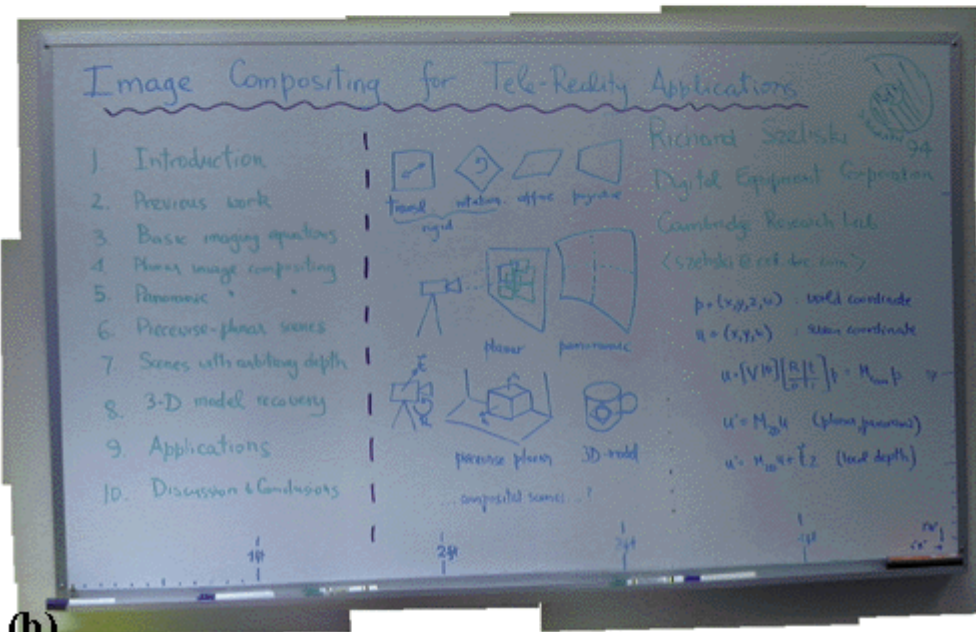 Image Compositing for Tele-Reality Applications
1. Introduction
2. Previous work
3. Basic imaging equations
4. Planar image compositing
5. Panoramic " "
6. Piecewise-planar scenes
7. Scenes with arbitrary depth
8. 3-D model recovery
9. Applications
10. Discussion & Conclusions
transl rotation affine projective
rigid
planar panoramic
t
R
piecewise planar 3D-model
...composited scenes...?
Richard Szeliski
94
Digital Equipment Corporation
Cambridge Research Lab
p = (x,y,z,w) : world coordinate
u = (x,y,w) : screen coordinate
u' = M2D u (planar panoramic)
(local depth)
1ft
2ft
(b)